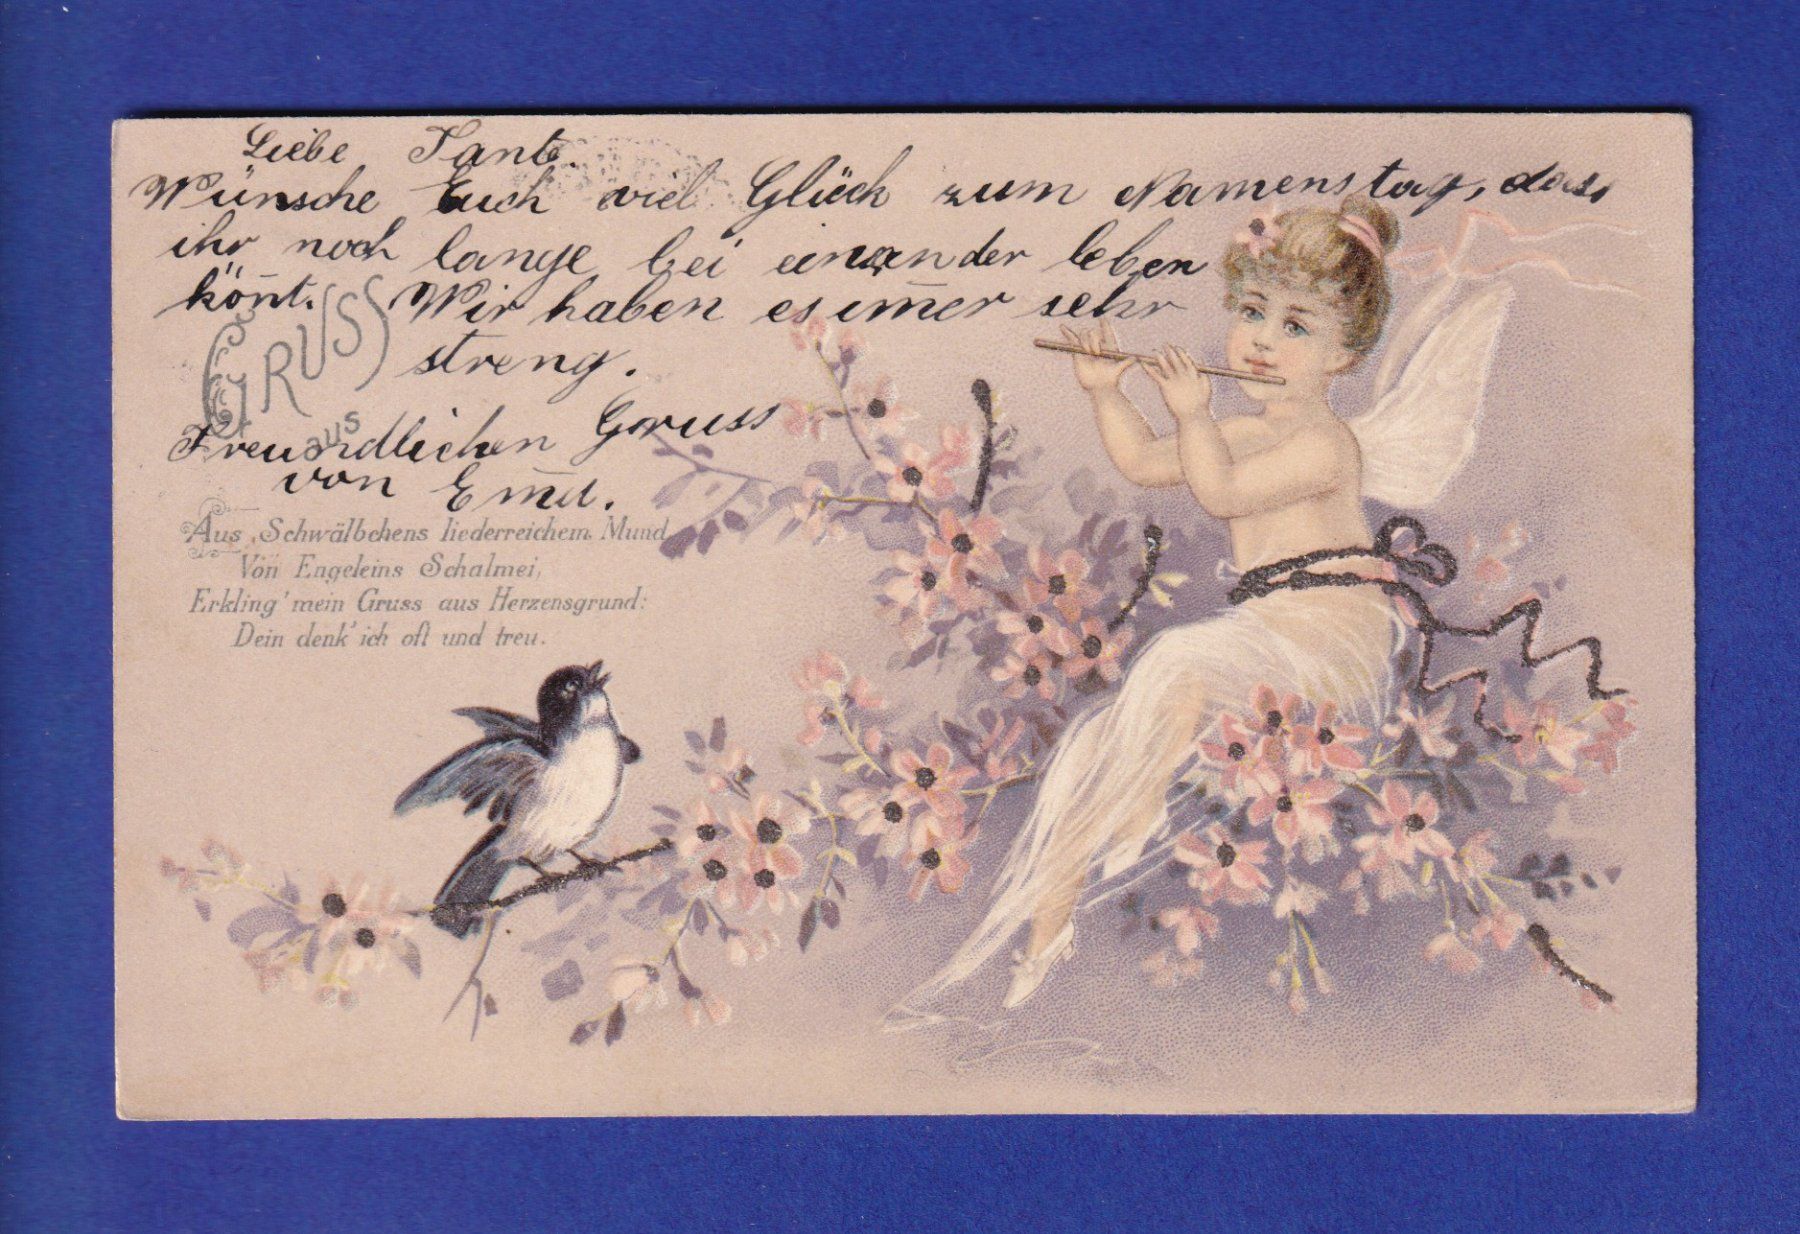 Liebe Tante.
Wünsche Euch viel Glück zum Namenstag, dass
ihr noch lange bei einander leben
kön̄t. Wir haben es im̄er sehr
streng.
GRUSS
aus
Freundlichen Gruss
von Em̄a.
Aus Schwälbchens liederreichem Mund,
Von Engeleins Schalmei,
Erkling' mein Gruss aus Herzensgrund:
Dein denk' ich oft und treu.